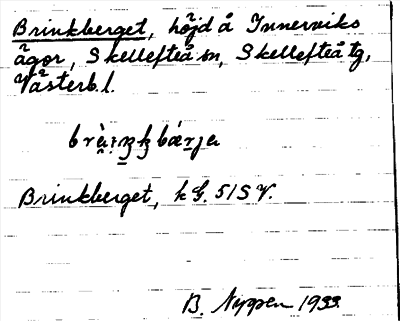 Brinkberget, höjd å Innerviks
ägor, Skellefteå sn, Skellefteå tg,
Västerb. l.
Brinkberget, k G. 51 SV.
B. Nyppen 1933.